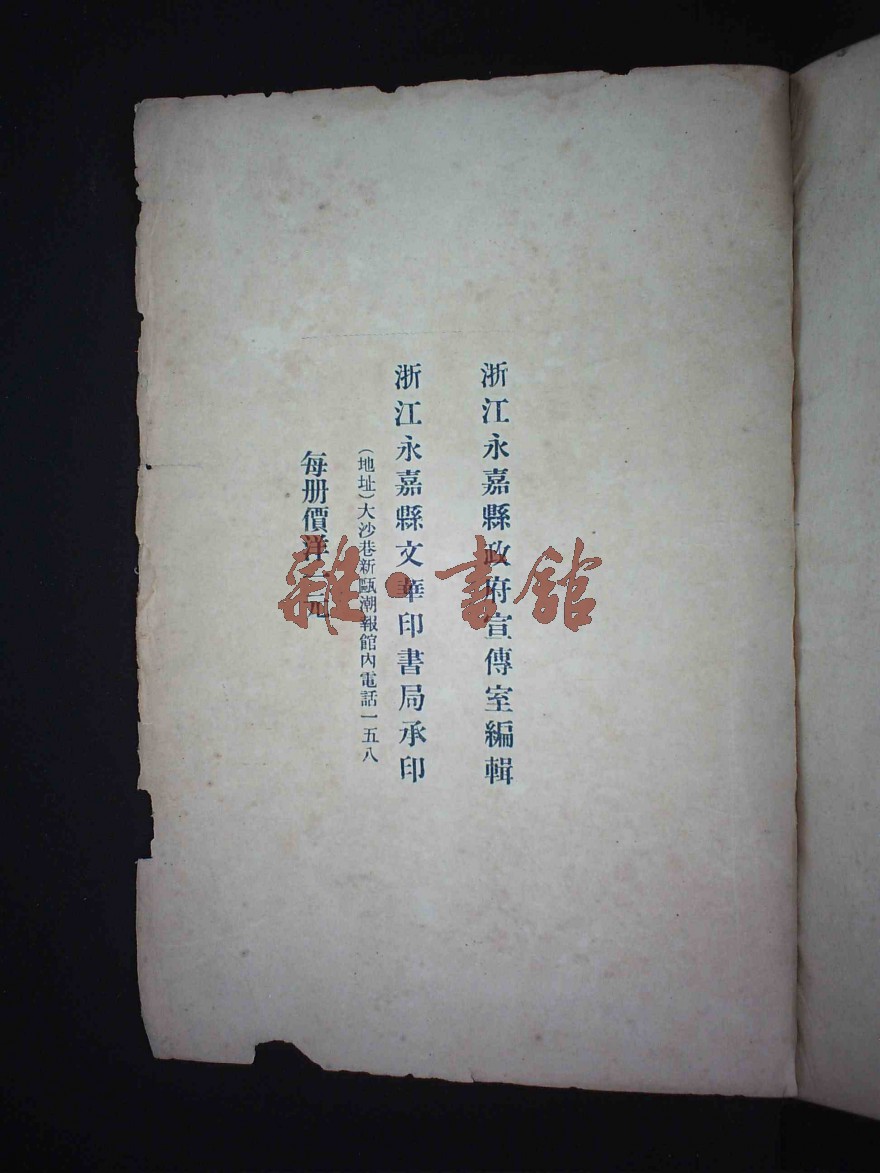 浙江永嘉縣政府宣傳室編輯
浙江永嘉縣文華印書局承印
(地址)大沙巷新甌潮報館內電話一五八
每册價洋一元
雜·書館